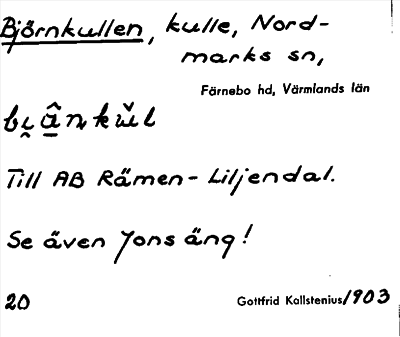 Björnkullen, kulle, Nord-
marks sn,
Färnebo hd, Värmlands län
Till AB Rämen-Liljendal.
Se även Jons äng!
20 Gottfrid Kallstenius 1903